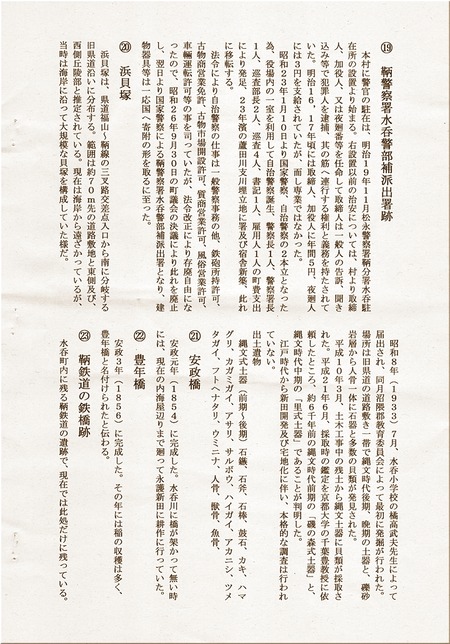 ⑲ 鞆警察署水呑警部補派出署跡
本村に警官の駐在は、明治19年11月松永警察署鞆分署水呑駐
在所の設置より始まる。右設置以前の治安については、村より取締
人、加役人、又は夜廻番等を任命して取締人は一般人の告訴、聞き
込み等で犯罪人を逮捕、其の筋へ連行する権利と義務を持たされて
いた。明治16、17年頃には取締人、加役人に年間5円、夜廻人
には3円を支給されていたが、而し専業ではなかった。
昭和23年1月10日より国家警察、自治警察の2本立となった
為、役場内の一室を利用して自治警察誕生、警察長1人、警察署長
1人、巡査部長2人、巡査4人、書記1人、雇用人1人の町費支出
により発足、23年濱の蘆田川支川埋立地に署及び宿舎新築、此れ
に移転する。
法令により自治警察の仕事は一般警察事務の他、鉄砲所持許可、
古物商営業免許、古物市場開設許可、質商営業許可、風俗営業許可、
車輛運転許可等の事を司っていたが、法令改正により存廃自由にな
ったので、昭和26年9月30日の町議会の決議により此れを廃止
し、翌日より国家警察による鞆警察署水呑警部補派出署となり、建
物器具等は一応国へ寄附の形を取るに至った。
⑳ 浜貝塚
浜貝塚は、県道福山〜鞆線の三叉路交差点入口から南に分岐する
旧県道沿いに分布する。範囲は約70m先の道路敷地と東側及び、
西側丘陵部と推定されている。現在は海岸から遠ざかっているが、
当時は海岸に沿って大規模な貝塚を構成していた様だ。
昭和8年(1933)7月、水呑小学校の橘高武夫先生によって
届出され、同月沼隈郡教育委員会によって最初に発掘が行われた。
場所は旧県道の道路敷き一帯で縄文時代後期、晩期の土器と、礫砂
岩層から人骨一体に石器と多数の貝類が発見された。
平成10年3月、土木工事中の残土から縄文土器に貝類が採取さ
れた。平成21年6月、採取時の鑑定を京都大学の千葉豊教授に依
頼したところ、約6千年前の縄文時代前期の「磯の森式土器」と、
縄文時代中期の「里式土器」であることが判明した。
江戸時代から新田開発及び宅地化に伴い、本格的な調査は行われ
ていない。
出土遺物
縄文式土器(前期〜後期)石鏃、石斧、石棒、鼓石、カキ、ハマ
グリ、カガミガイ、アサリ、サルボウ、ハイガイ、アカニシ、ツメ
タガイ、フトヘナタリ、ウミニナ、人骨、獣骨、魚骨、
㉑ 安政橋
安政元年(1854)に完成した。水呑川に橋が架かって無い時
には、現在の内海屋辺りまで廻って永護新田に耕作に行っていた。
㉒ 豊年橋
安政3年(1856)に完成した。その年には稲の収穫は多く、
豊年橋と名付けられたと伝わる。
㉓ 鞆鉄道の鉄橋跡
水呑町内に残る鞆鉄道の遺跡で、現在では此処だけに残っている。